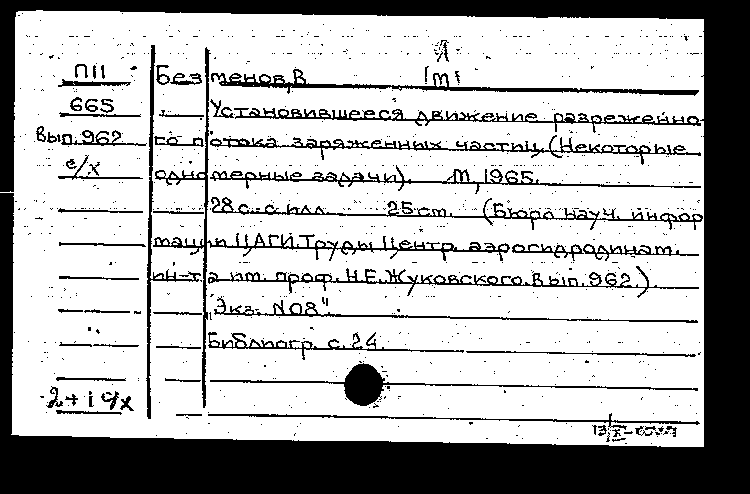 П11 Безменов, В
665 Установившееся движение разреженно-
Вып. 962 го потока заряженных частиц. (Некоторые
с/х одномерные задачи). М, 1965.
28 с. с илл. 25 ст. (Бюро науч. инфор
мации ЦАГИ. Труды Центр. аэрогидродинам.
ин-та им. проф. Н.Е. Жуковского. Вып. 962.)
"Экз. N08".
Библиогр. с. 24.
2+1 с/х